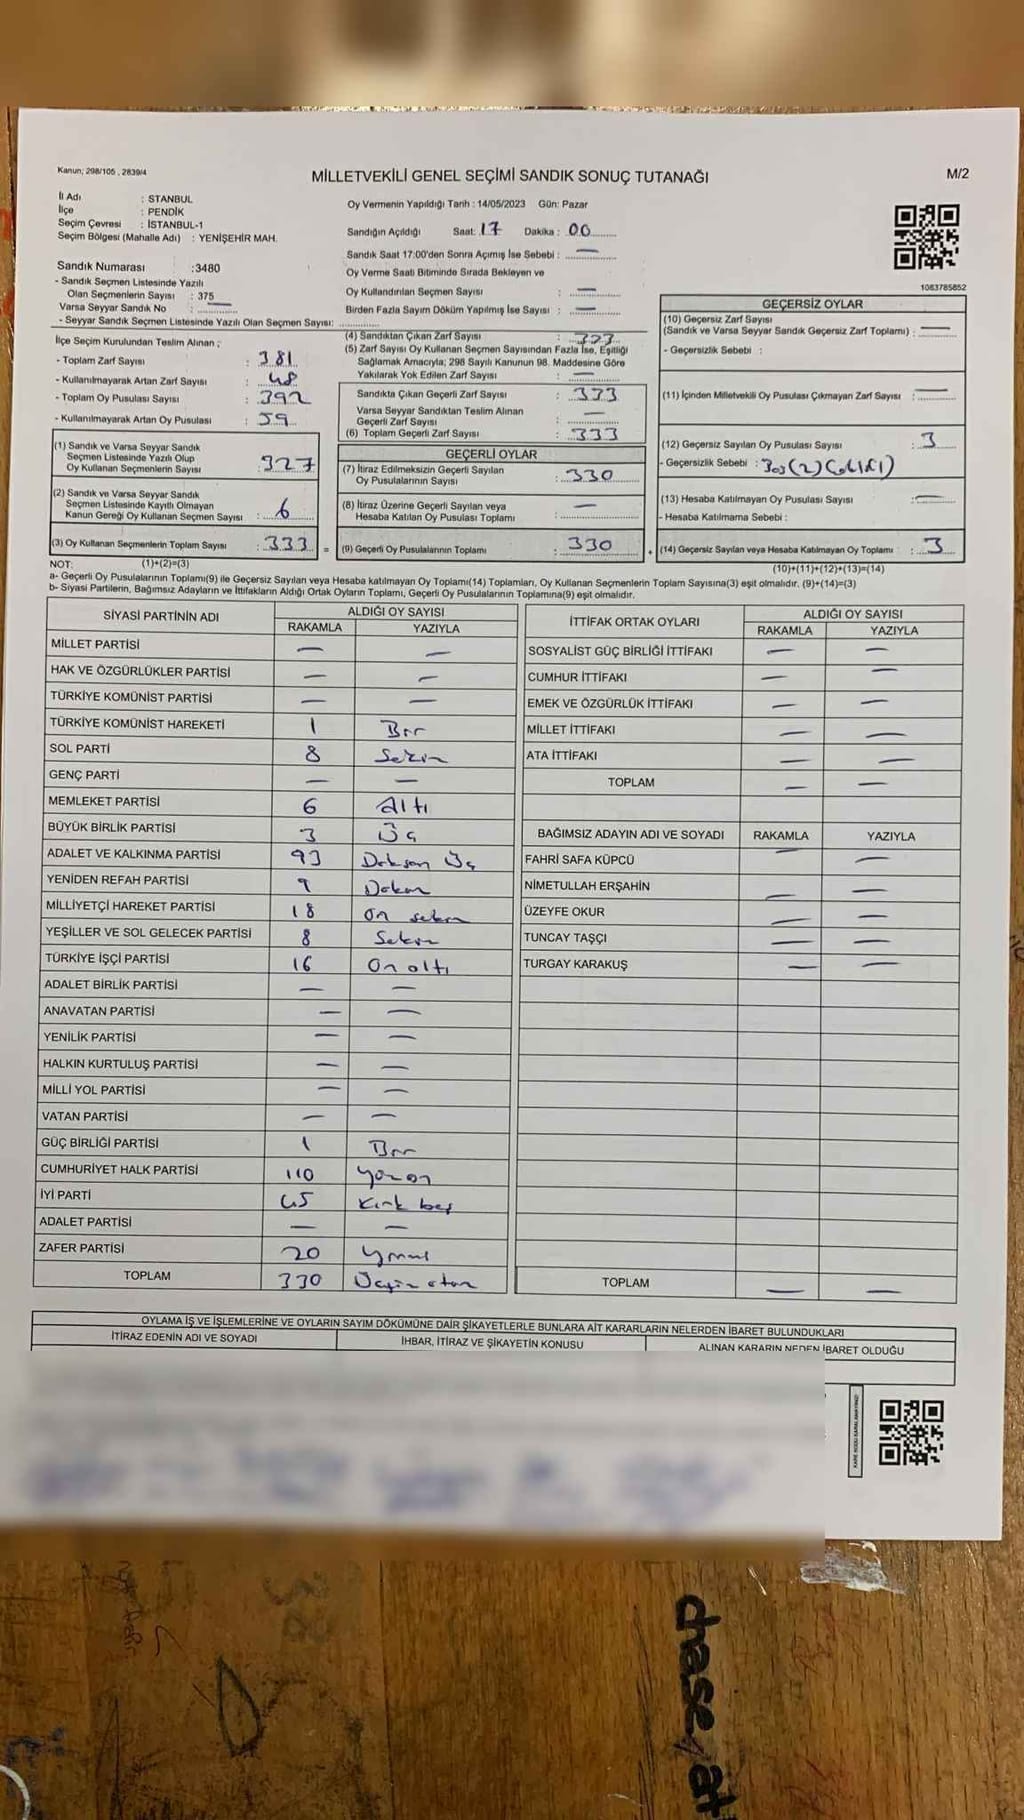 Kanun; 298/105 , 2839/4
MİLLETVEKİLİ GENEL SEÇİMİ SANDIK SONUÇ TUTANAĞI
M/2
İl Adı : STANBUL
İlçe : PENDİK
Seçim Çevresi : İSTANBUL-1
Seçim Bölgesi (Mahalle Adı) : YENİŞEHİR MAH.
Sandık Numarası :3480
- Sandık Seçmen Listesinde Yazılı
Olan Seçmenlerin Sayısı : 375
Varsa Seyyar Sandık No : —
- Seyyar Sandık Seçmen Listesinde Yazılı Olan Seçmen Sayısı:
İlçe Seçim Kurulundan Teslim Alınan ;
- Toplam Zarf Sayısı : 381
- Kullanılmayarak Artan Zarf Sayısı : 48
- Toplam Oy Pusulası Sayısı : 392
- Kullanılmayarak Artan Oy Pusulası : 59
(1) Sandık ve Varsa Seyyar Sandık
Seçmen Listesinde Yazılı Olup
Oy Kullanan Seçmenlerin Sayısı : 327
(2) Sandık ve Varsa Seyyar Sandık
Seçmen Listesinde Kayıtlı Olmayan
Kanun Gereği Oy Kullanan Seçmen Sayısı : 6
(3) Oy Kullanan Seçmenlerin Toplam Sayısı : 333 =
Oy Vermenin Yapıldığı Tarih : 14/05/2023 Gün: Pazar
Sandığın Açıldığı Saat: 17 Dakika : 00
Sandık Saat 17:00'den Sonra Açımış İse Sebebi : —
Oy Verme Saati Bitiminde Sırada Bekleyen ve
Oy Kullandırılan Seçmen Sayısı : —
Birden Fazla Sayım Döküm Yapılmış İse Sayısı : —
(4) Sandıktan Çıkan Zarf Sayısı : 333
(5) Zarf Sayısı Oy Kullanan Seçmen Sayısından Fazla İse, Eşitliği
Sağlamak Amacıyla; 298 Sayılı Kanunun 98. Maddesine Göre
Yakılarak Yok Edilen Zarf Sayısı : —
Sandıkta Çıkan Geçerli Zarf Sayısı : 333
Varsa Seyyar Sandıktan Teslim Alınan
Geçerli Zarf Sayısı : —
(6) Toplam Geçerli Zarf Sayısı : 333
GEÇERLİ OYLAR
(7) İtiraz Edilmeksizin Geçerli Sayılan
Oy Pusulalarının Sayısı : 330
(8) İtiraz Üzerine Geçerli Sayılan veya
Hesaba Katılan Oy Pusulası Toplamı : —
(9) Geçerli Oy Pusulalarının Toplamı : 330 +
1063785852
GEÇERSİZ OYLAR
(10) Geçersiz Zarf Sayısı
(Sandık ve Varsa Seyyar Sandık Geçersiz Zarf Toplamı) : —
- Geçersizlik Sebebi :
(11) İçinden Milletvekili Oy Pusulası Çıkmayan Zarf Sayısı : —
(12) Geçersiz Sayılan Oy Pusulası Sayısı : 3
- Geçersizlik Sebebi :
(13) Hesaba Katılmayan Oy Pusulası Sayısı : —
- Hesaba Katılmama Sebebi :
(14) Geçersiz Sayılan veya Hesaba Katılmayan Oy Toplamı : 3
NOT: (1)+(2)=(3)
(10)+(11)+(12)+(13)=(14)
a- Geçerli Oy Pusulalarının Toplamı(9) ile Geçersiz Sayılan veya Hesaba katılmayan Oy Toplamı(14) Toplamları, Oy Kullanan Seçmenlerin Toplam Sayısına(3) eşit olmalıdır. (9)+(14)=(3)
b- Siyasi Partilerin, Bağımsız Adayların ve İttifakların Aldığı Ortak Oyların Toplamı, Geçerli Oy Pusulalarının Toplamına(9) eşit olmalıdır.
SİYASİ PARTİNİN ADI ALDIĞI OY SAYISI
RAKAMLA YAZIYLA
MİLLET PARTİSİ — —
HAK VE ÖZGÜRLÜKLER PARTİSİ — —
TÜRKİYE KOMÜNİST PARTİSİ — —
TÜRKİYE KOMÜNİST HAREKETİ 1 Bir
SOL PARTİ 8 Sekiz
GENÇ PARTİ — —
MEMLEKET PARTİSİ 6 Altı
BÜYÜK BİRLİK PARTİSİ 3 Üç
ADALET VE KALKINMA PARTİSİ 93 Doksan Üç
YENİDEN REFAH PARTİSİ 9 Dokuz
MİLLİYETÇİ HAREKET PARTİSİ 18 On sekiz
YEŞİLLER VE SOL GELECEK PARTİSİ 8 Sekiz
TÜRKİYE İŞÇİ PARTİSİ 16 On altı
ADALET BİRLİK PARTİSİ — —
ANAVATAN PARTİSİ — —
YENİLİK PARTİSİ — —
HALKIN KURTULUŞ PARTİSİ — —
MİLLİ YOL PARTİSİ — —
VATAN PARTİSİ — —
GÜÇ BİRLİĞİ PARTİSİ 1 Bir
CUMHURİYET HALK PARTİSİ 110 Yüz on
İYİ PARTİ 45 Kırk beş
ADALET PARTİSİ — —
ZAFER PARTİSİ 20 Yirmi
TOPLAM 330 Üçyüz otuz
İTTİFAK ORTAK OYLARI ALDIĞI OY SAYISI
RAKAMLA YAZIYLA
SOSYALİST GÜÇ BİRLİĞİ İTTİFAKI — —
CUMHUR İTTİFAKI — —
EMEK VE ÖZGÜRLÜK İTTİFAKI — —
MİLLET İTTİFAKI — —
ATA İTTİFAKI — —
TOPLAM — —
BAĞIMSIZ ADAYIN ADI VE SOYADI RAKAMLA YAZIYLA
FAHRİ SAFA KÜPCÜ — —
NİMETULLAH ERŞAHİN — —
ÜZEYFE OKUR — —
TUNCAY TAŞÇI — —
TURGAY KARAKUŞ — —
TOPLAM — —
OYLAMA İŞ VE İŞLEMLERİNE VE OYLARIN SAYIM DÖKÜMÜNE DAİR ŞİKAYETLERLE BUNLARA AİT KARARLARIN NELERDEN İBARET BULUNDUKLARI
İTİRAZ EDENİN ADI VE SOYADI
İHBAR, İTİRAZ VE ŞİKAYETİN KONUSU
ALINAN KARARIN NEDEN İBARET OLDUĞU
chase